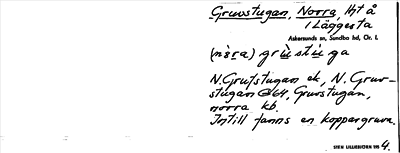 Gruvstugan, Norra, lht å
i Läggesta
Askersunds sn, Sundbo hd, Ör. l.
(nòra) grùstùga
N. Grufstugan ek, N. Gruv-
stugan GK64, Gruvstugan,
norra kb.
Intill fanns en koppargruva.
STEN LILLIEBJÖRN 195 4.